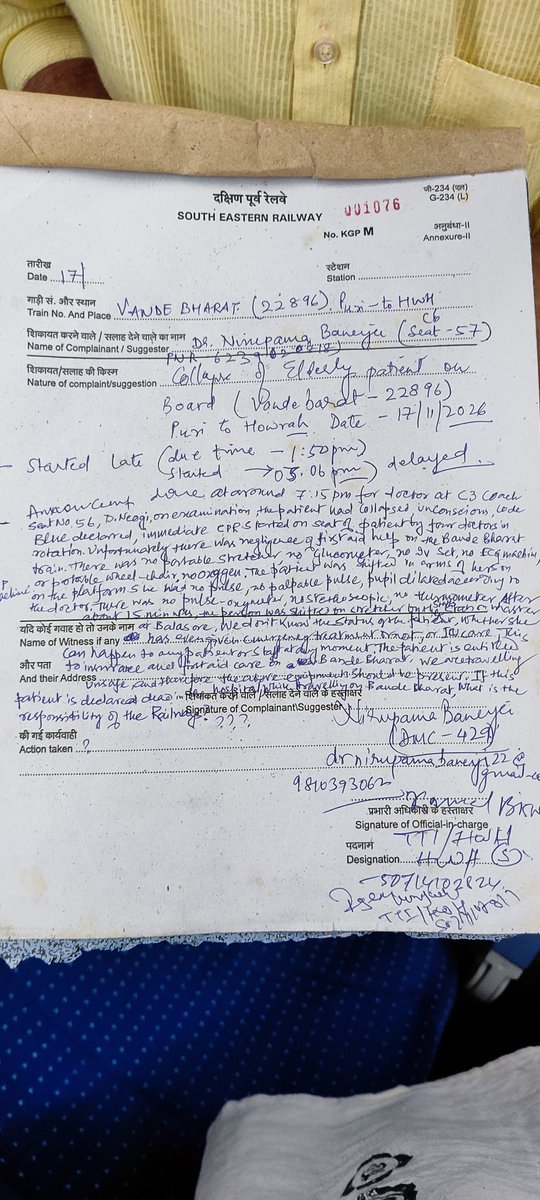 दक्षिण पूर्व रेलवे
SOUTH EASTERN RAILWAY
001076
जी-234 (एल)
G-234 (L)
No. KGP M
अनुबंधा-II
Annexure-II
तारीख
Date 17/
स्टेशन
Station
गाड़ी सं. और स्थान
Train No. And Place VANDE BHARAT (22896). Puri-to HWH
शिकायत करने वाले / सलाह देने वाले का नाम
Name of Complainant / Suggester Dr. Nirupama Banerjee (Seat-57) C6
PNR 6239
शिकायत/सलाह की किस्म
Nature of complaint/suggestion Collapse of Elderly patient on
Board (Vandebarat - 22896)
Puri to Howrah Date - 17/11/2026
- Started late (due time - 1:50pm)
(Started → 03.06 pm) delayed.
- Announcement done at around 7:15 pm for doctor at C3 Coach
Seat No. 56, D. Neogi, on examination the patient had collapsed, unconscious, code
Blue declared, immediate CPR started on seat of patient by four doctors in
rotation. Unfortunately there was negligence of first aid help on the Bande Bharat
train. There was no portable stretcher no Glucometer, no IV Set, no ECG machine,
or potable wheel-chair, no oxygen. The patient was shifted in arms of person
on the platform she had no pulse, no palpable pulse, pupil dilated according to
the doctor. There was no pulse-oxymeter, no stethoscopic, no thermometer. After
about 15 minutes the person was shifted on stretcher by station master
यदि कोई गवाह हो तो उनके नाम at Balasore, We don't know the status of the patient. Whether she
Name of Witness if any has even given emergency treatment or not, or ICU care, This
can happen to any patient or staff at any moment. The patient is entitled
और पता
And their Address to immediate and first aid care on Bande Bharat. We are travelling
unsafe, and therefore the above equipments should be present. If this
patient is declared dead in the hospital while travelling on Bande Bharat What is the
responsibility of the Railways ???
शिकायत करने वाले /सलाह देने वाले के हस्ताक्षर
Signature of Complainant\Suggester Nirupama Banerjee
(DMC-429)
की गई कार्यवाही
Action taken ?
drnirupamabanerjee22@
gmail.co
9810393062
प्रभारी अधिकारी के हस्ताक्षर
Signature of Official-in-charge
TTI/HWH
पदनाम
Designation HWH (S)